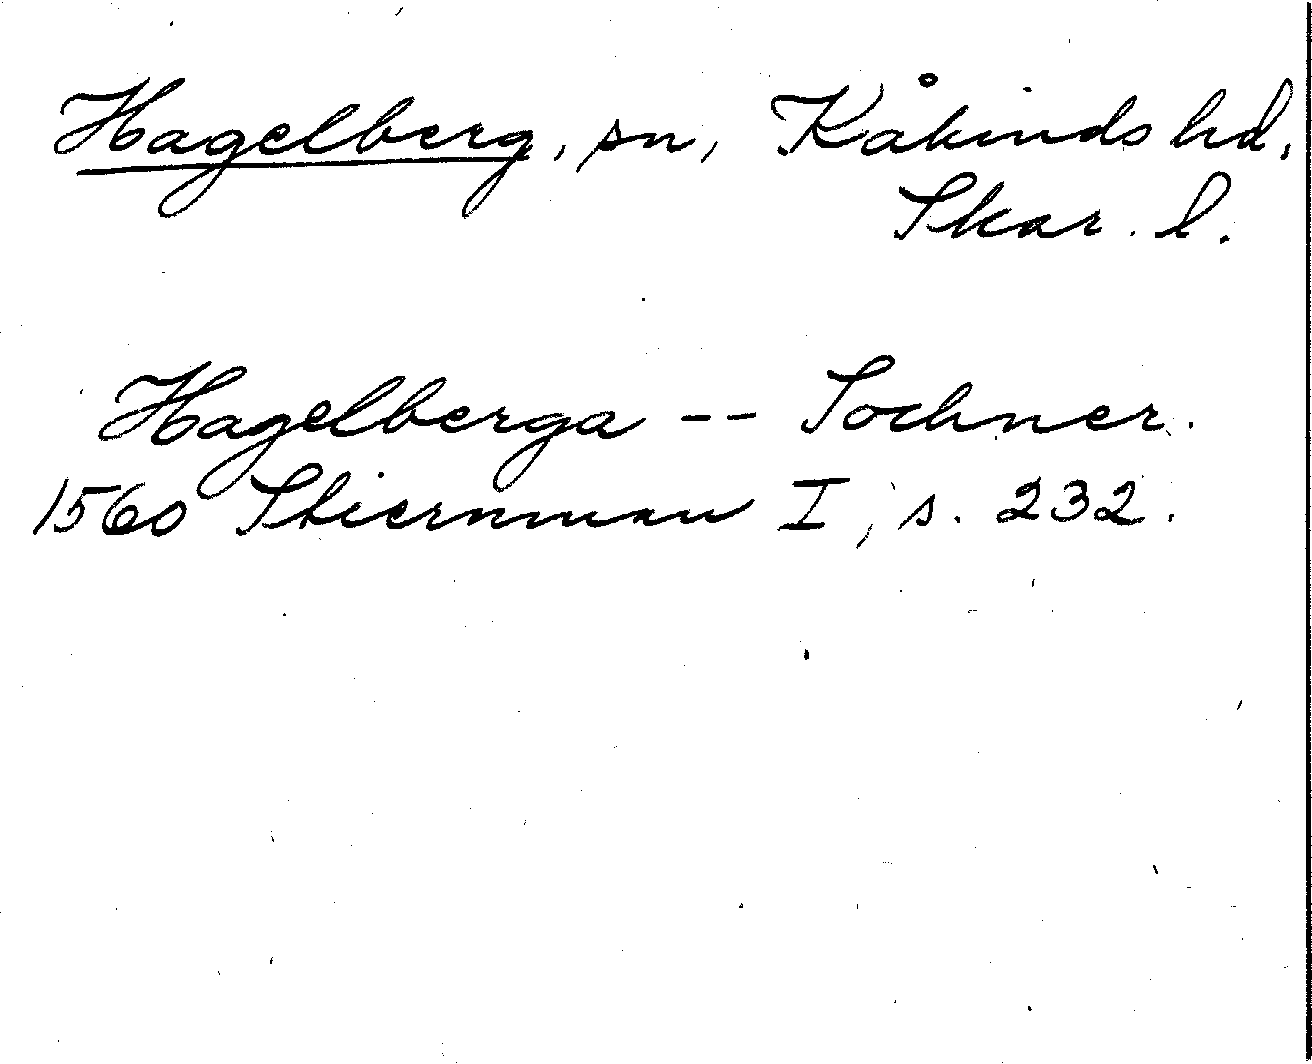 Hagelberg, sn, Kåkinds hd,
Skar. l.
Hagelberga -- Sochner.
1560 Stiernman I, s. 232.